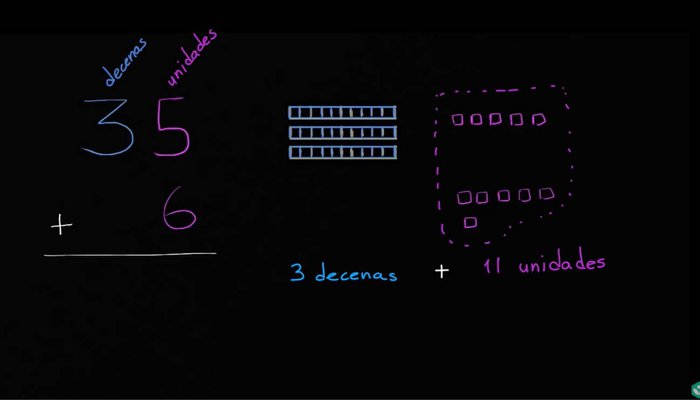 decenas unidades
35
+ 6
3 decenas + 11 unidades